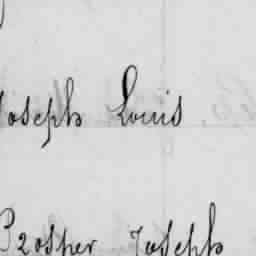 Joseph Louis
Prosper Joseph